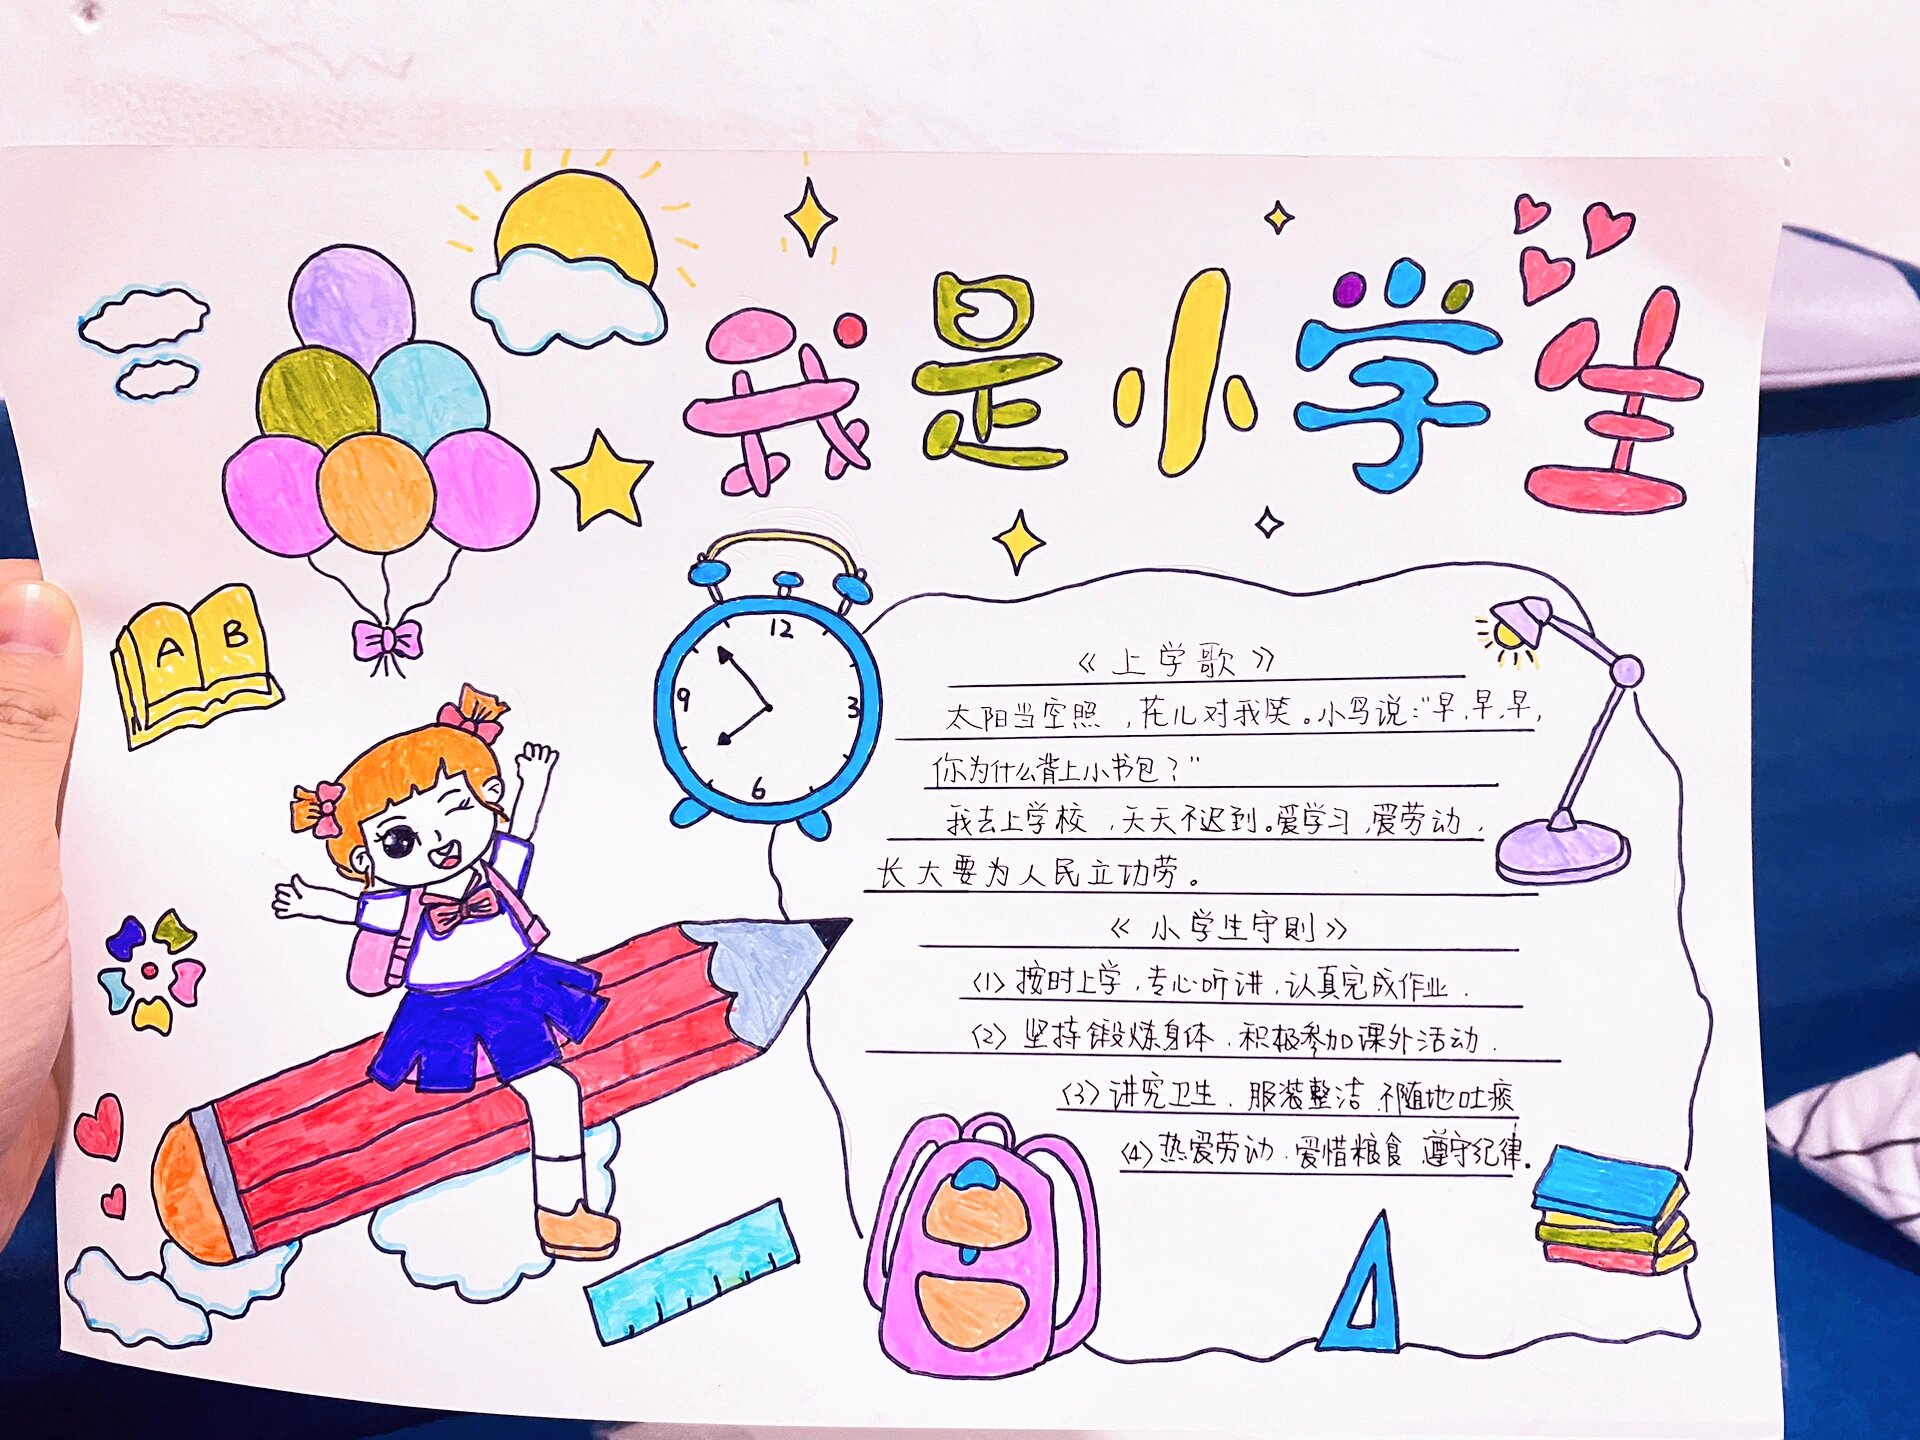 我是小学生
A B
12
9 3
6
《上学歌》
太阳当空照，花儿对我笑。小鸟说："早，早，早，
你为什么背上小书包？"
我去上学校，天天不迟到。爱学习，爱劳动，
长大要为人民立功劳。
《小学生守则》
(1) 按时上学，专心听讲，认真完成作业．
(2) 坚持锻炼身体，积极参加课外活动．
(3) 讲究卫生、服装整洁 不随地吐痰
(4) 热爱劳动、爱惜粮食 遵守纪律。